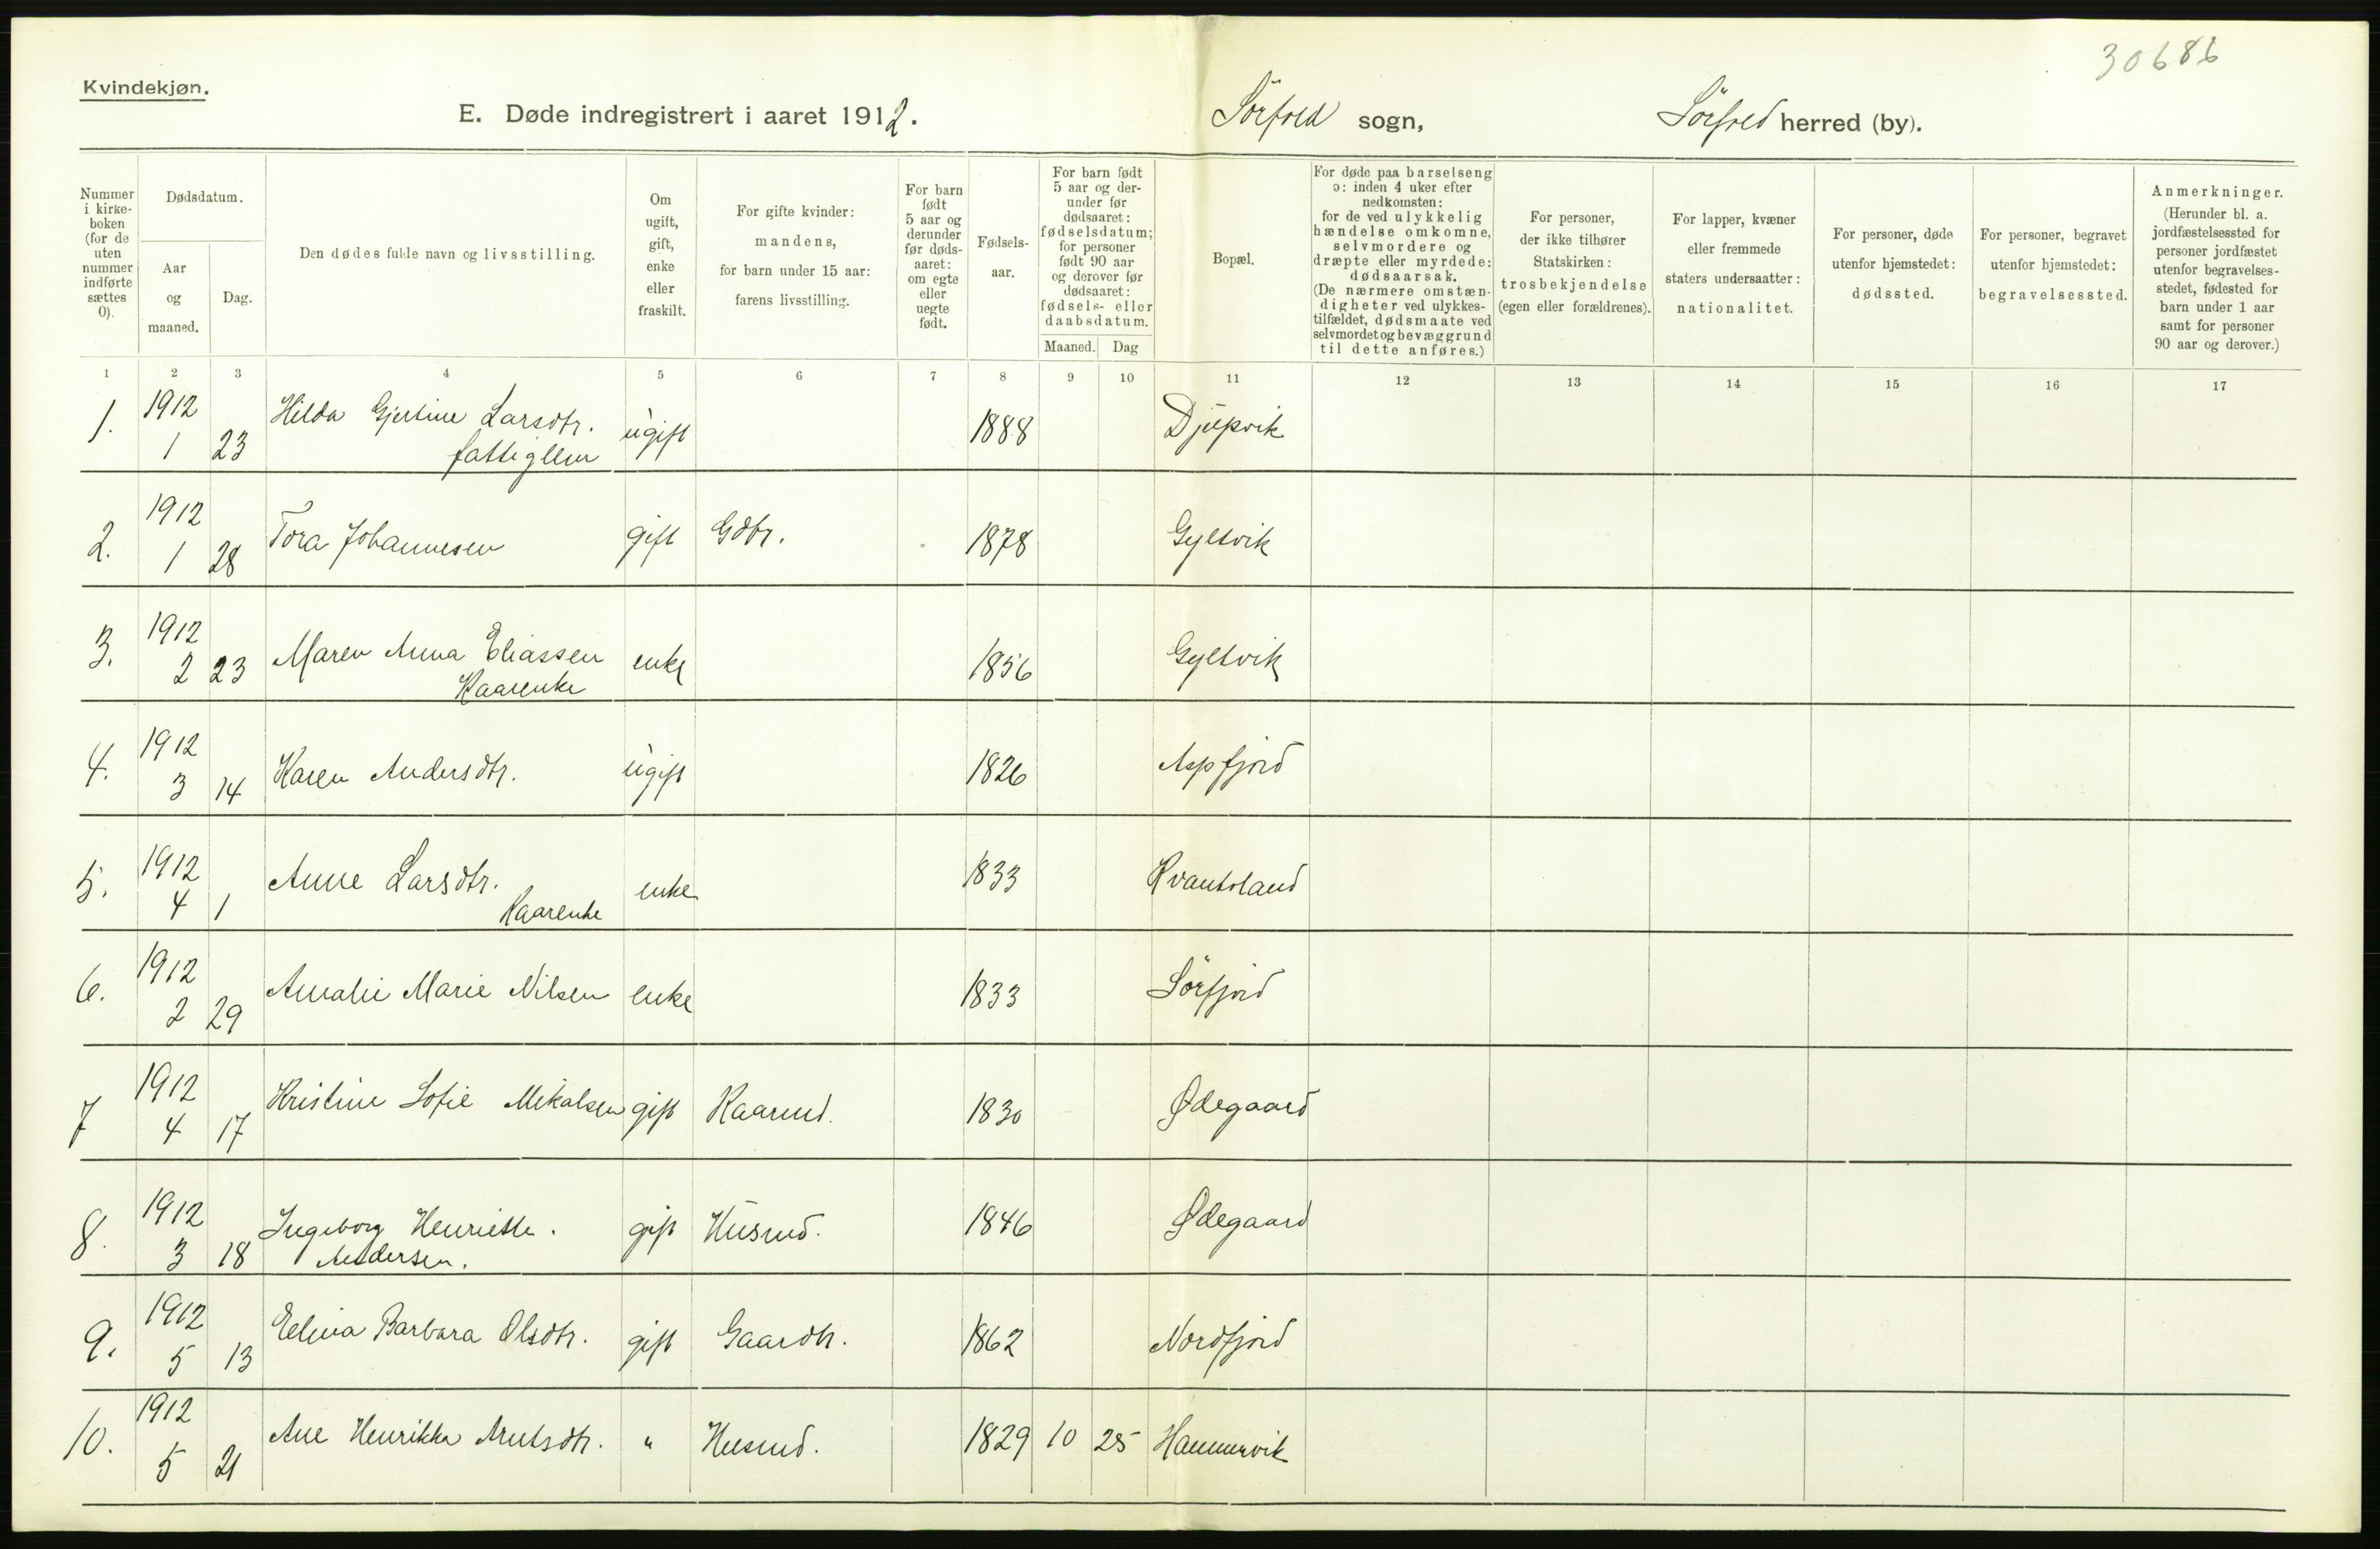 30686
Kvindekjøn.
E. Døde indregistrert i aaret 1912. Sörfold sogn, Sörfold herred (by).
Nummer i kirke-boken (for de uten nummer indførte sættes 0).
Dødsdatum.
Aar og maaned.
Dag.
Den dødes fulde navn og livsstilling.
Om ugift, gift, enke eller fraskilt.
For gifte kvinder: mandens, for barn under 15 aar: farens livsstilling.
For barn født 5 aar og derunder før døds-aaret: om egte eller uegte født.
Fødsels-aar.
For barn født 5 aar og der-under før dødsaaret: fødselsdatum; for personer født 90 aar og derover før dødsaaret: fødsels- eller daabsdatum.
Maaned. Dag
Bopæl.
For døde paa barselseng ɔ: inden 4 uker efter nedkomsten: for de ved ulykkelig hændelse omkomne, selvmordere og dræpte eller myrdede: dødsaarsak. (De nærmere omstæn-digheter ved ulykkes-tilfældet, dødsmaate ved selvmordet og bevæggrund til dette anføres.)
For personer, der ikke tilhører Statskirken: trosbekjendelse (egen eller forældrenes).
For lapper, kvæner eller fremmede staters undersaatter: nationalitet.
For personer, døde utenfor hjemstedet: dødssted.
For personer, begravet utenfor hjemstedet: begravelsessted.
Anmerkninger. (Herunder bl. a. jordfæstelsessted for personer jordfæstet utenfor begravelses-stedet, fødested for barn under 1 aar samt for personer 90 aar og derover.)
1 2 3 4 5 6 7 8 9 10 11 12 13 14 15 16 17
1. 1912 1 23 Hilda Gjertine Larsdtr. fattiglem ugift 1888 Djupvik
2. 1912 1 28 Tora Johannesen gift Gdbr. 1878 Gyltvik
3. 1912 2 23 Maren Anna Eliassen Kaarenke enke 1856 Gyltvik
4. 1912 3 14 Karen Andersdtr. ugift 1826 Aspfjord
5. 1912 4 1 Anne Larsdtr. Kaarenke enke 1833 Kvantoland
6. 1912 2 29 Amalie Marie Nilsen enke 1833 Sörfjord
7 1912 4 17 Kristine Sofie Mikalsen gift Kaarmd. 1830 Ødegaard
8. 1912 3 18 Ingeborg Henriette. Andersen. gift Husmd. 1846 Ødegaard
9. 1912 5 13 Barbara Olsdtr. gift 1862 Nordfjord
10. 1912 5 21 Ane Henrikka " Husmd. 1829 10 25 Hammervik